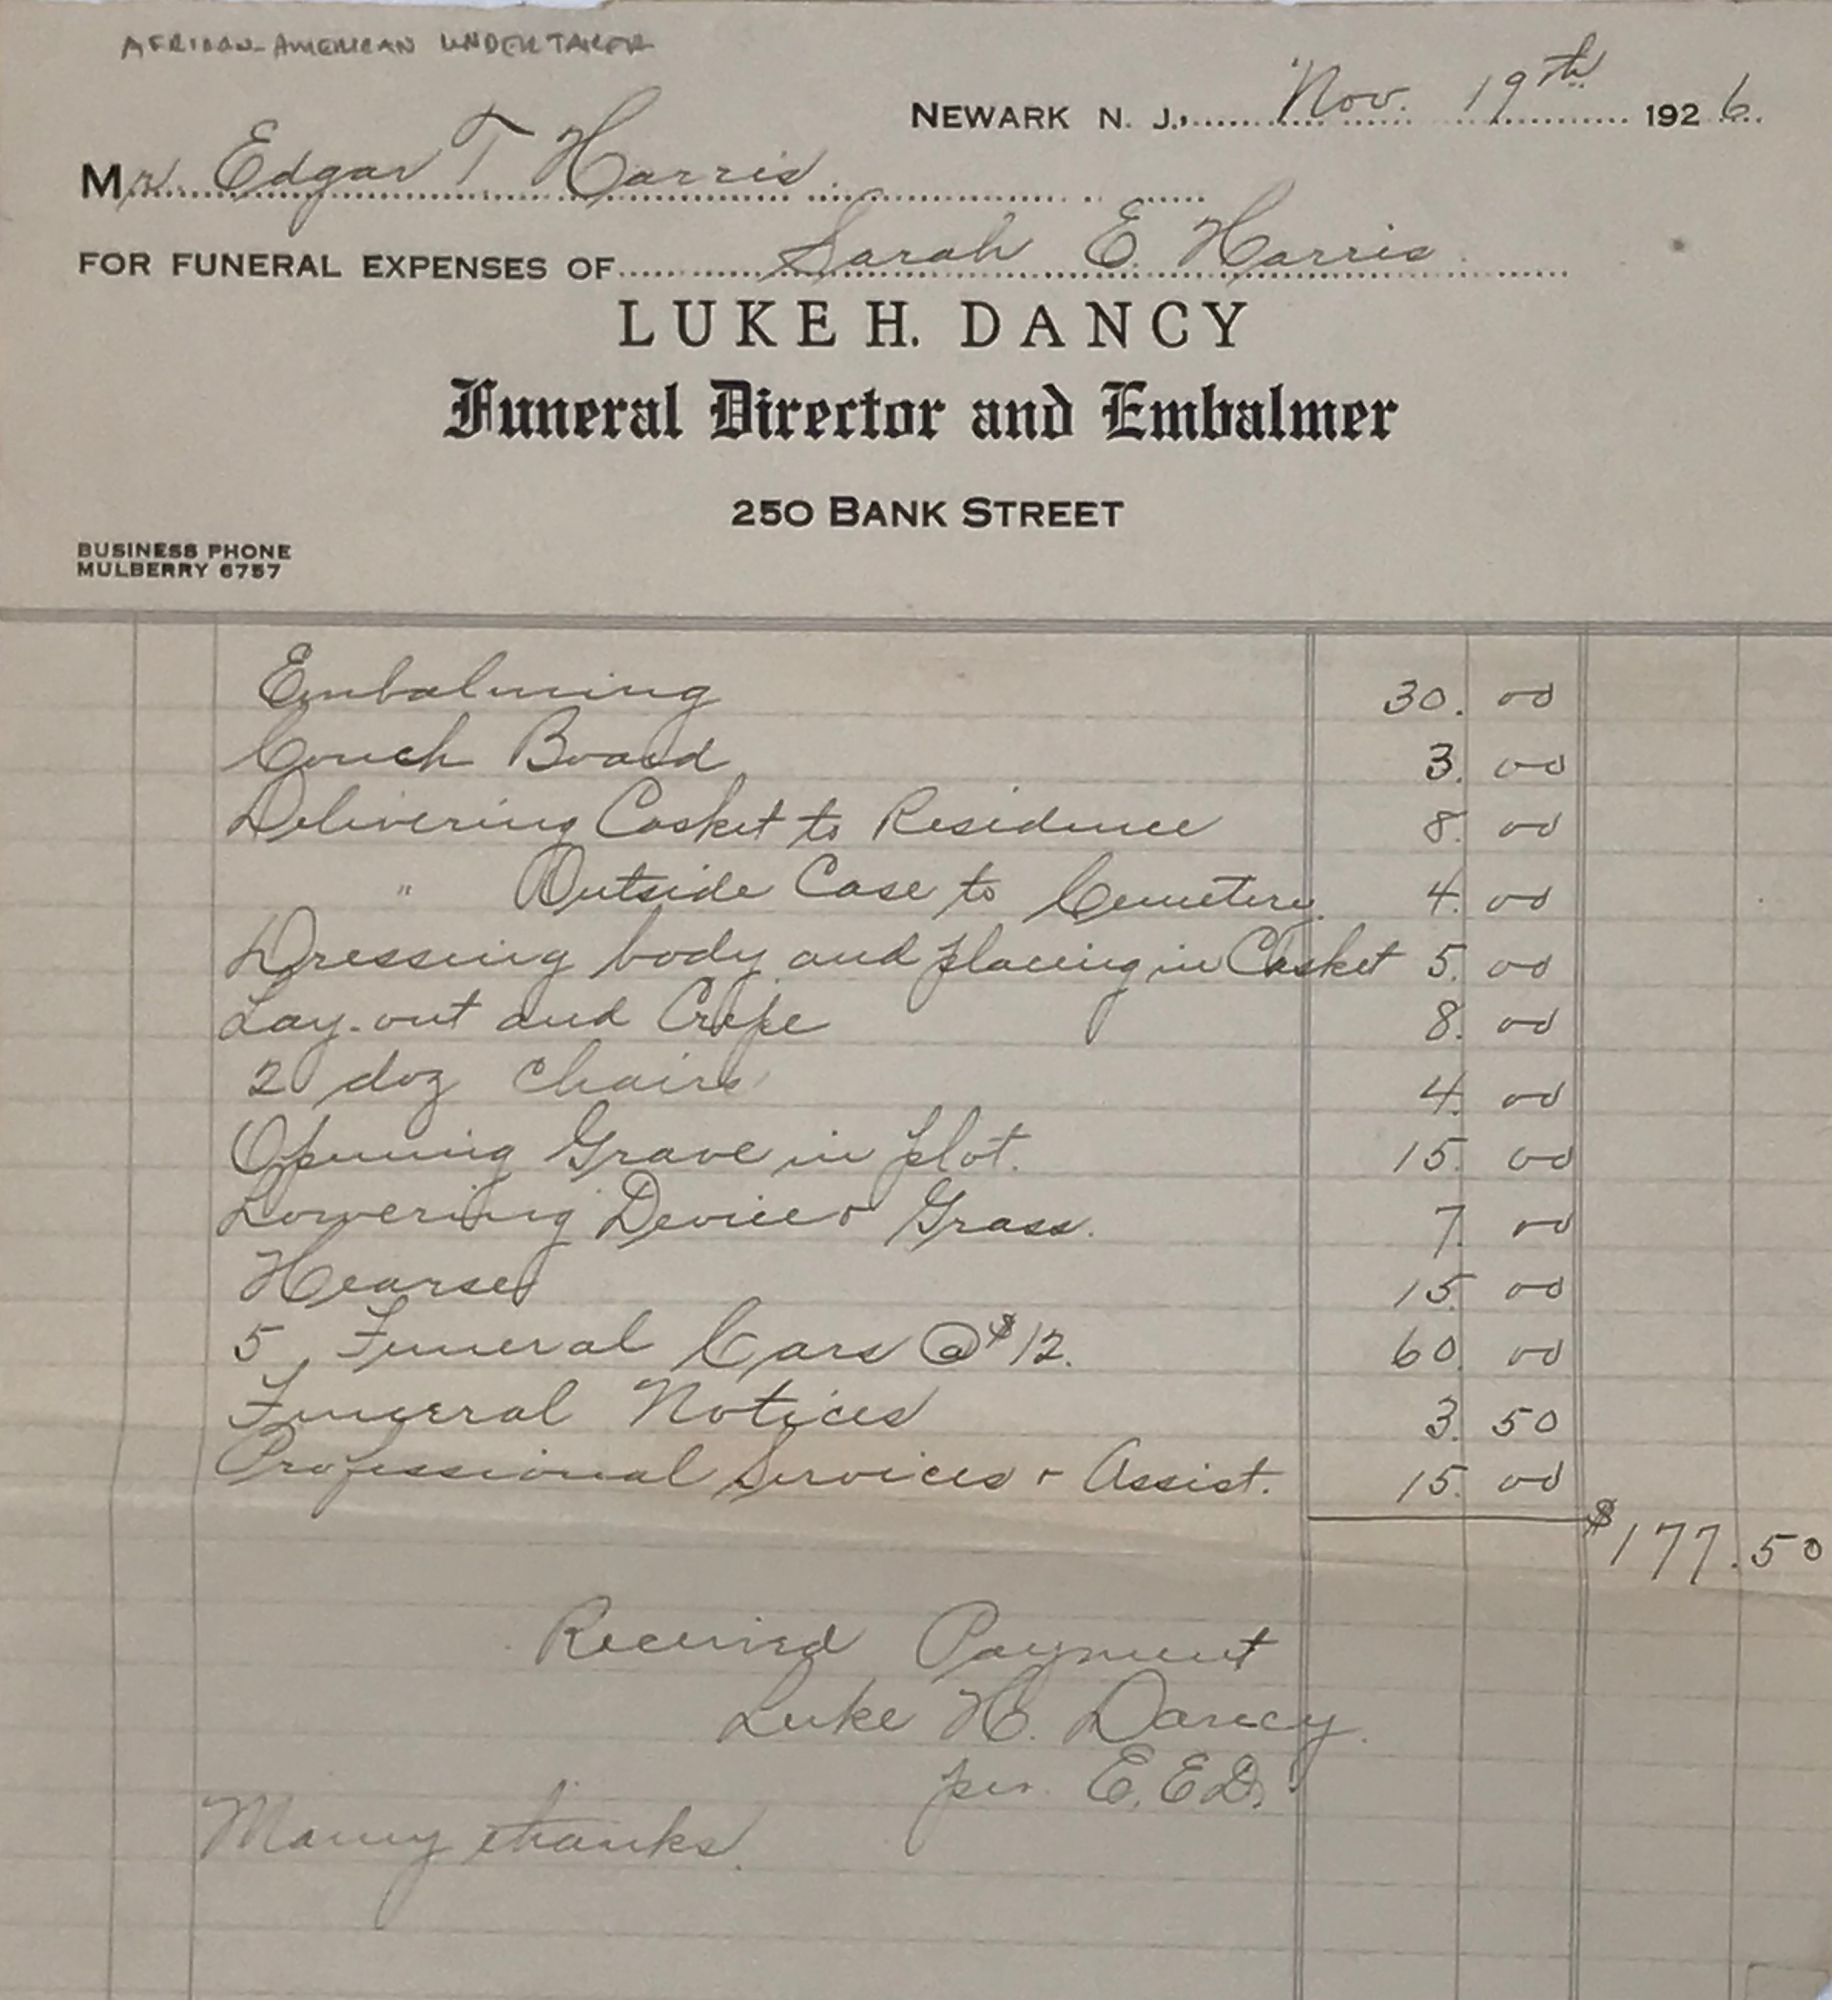 AFRICAN-AMERICAN UNDERTAKER
NEWARK N. J., Nov. 19th 1926.
Mr. Edgar T Harris
FOR FUNERAL EXPENSES OF Sarah E. Harris
LUKE H. DANCY
Funeral Director and Embalmer
250 BANK STREET
BUSINESS PHONE
MULBERRY 6757
Embalming 30. 00
Couch Board 3. 00
Delivering Casket to Residence 8. 00
" Outside Case to Cemetery. 4. 00
Dressing body and placing in Casket 5. 00
Lay-out and Crepe 8. 00
2 doz chairs 4. 00
Opening Grave in plot. 15. 00
Lowering Device & Grass. 7. 00
Hearse 15. 00
5 Funeral Cars @ $12. 60. 00
Funeral Notices 3. 50
Professional Services & Assist. 15. 00
$177.50
Received Payment
Luke H. Dancy.
per. E. E. D.
Many thanks.